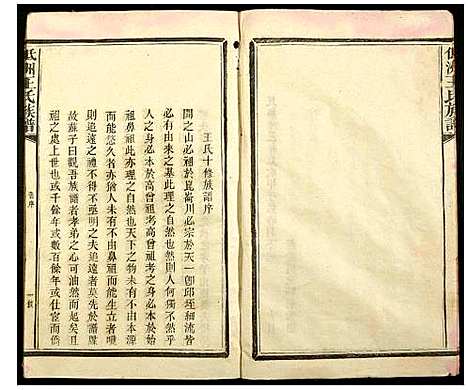 低洲王氏族譜
王氏十修族譜序
聞之山必祖於崑崙川必宗於天一即邱垤細流皆
必有由來之基此理之自然也然則人何獨不然乎
人之身必本於高曾祖考高曾祖考之身必本於始
祖鼻祖此理之自然也天下之物未有不由本源
而能悠久者亦猶人未有不由鼻祖而能生立者哉
則追遠之禮不得不亟明之夫追遠者莫先於譜牒
故蘇子曰觀吾族譜者孝弟之心可油然而起矣且
祖之處上世也或千餘年或數百餘年或仕宦而僑
首序
一
低洲王氏族譜